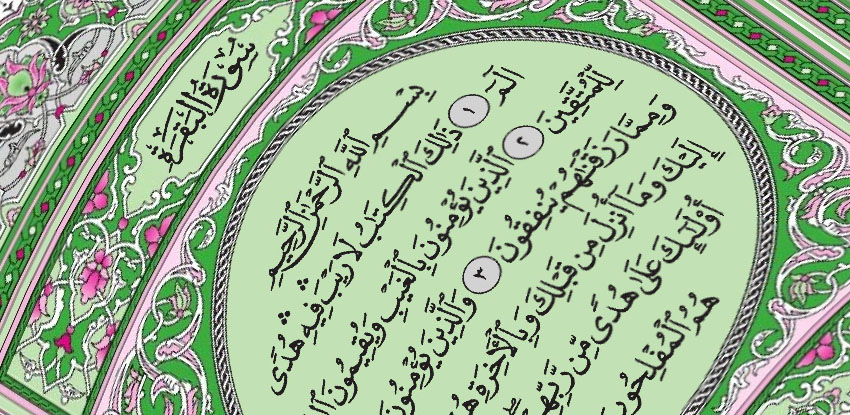 سُورَةُ البَقَرَةِ
بِسْمِ ٱللَّهِ ٱلرَّحْمَٰنِ ٱلرَّحِيمِ
الٓمٓ ١ ذَٰلِكَ ٱلْكِتَٰبُ لَا رَيْبَ ۛ فِيهِ ۛ هُدًى
لِّلْمُتَّقِينَ ٢ ٱلَّذِينَ يُؤْمِنُونَ بِٱلْغَيْبِ وَيُقِيمُونَ
وَمِمَّا رَزَقْنَٰهُمْ يُنفِقُونَ ٣ وَٱلَّذِينَ يُؤْمِنُونَ
إِلَيْكَ وَمَآ أُنزِلَ مِن قَبْلِكَ وَبِٱلْأَخِرَةِ
أُو۟لَٰٓئِكَ عَلَىٰ هُدًى مِّن رَّبِّهِمْ
هُمُ ٱلْمُفْلِحُونَ